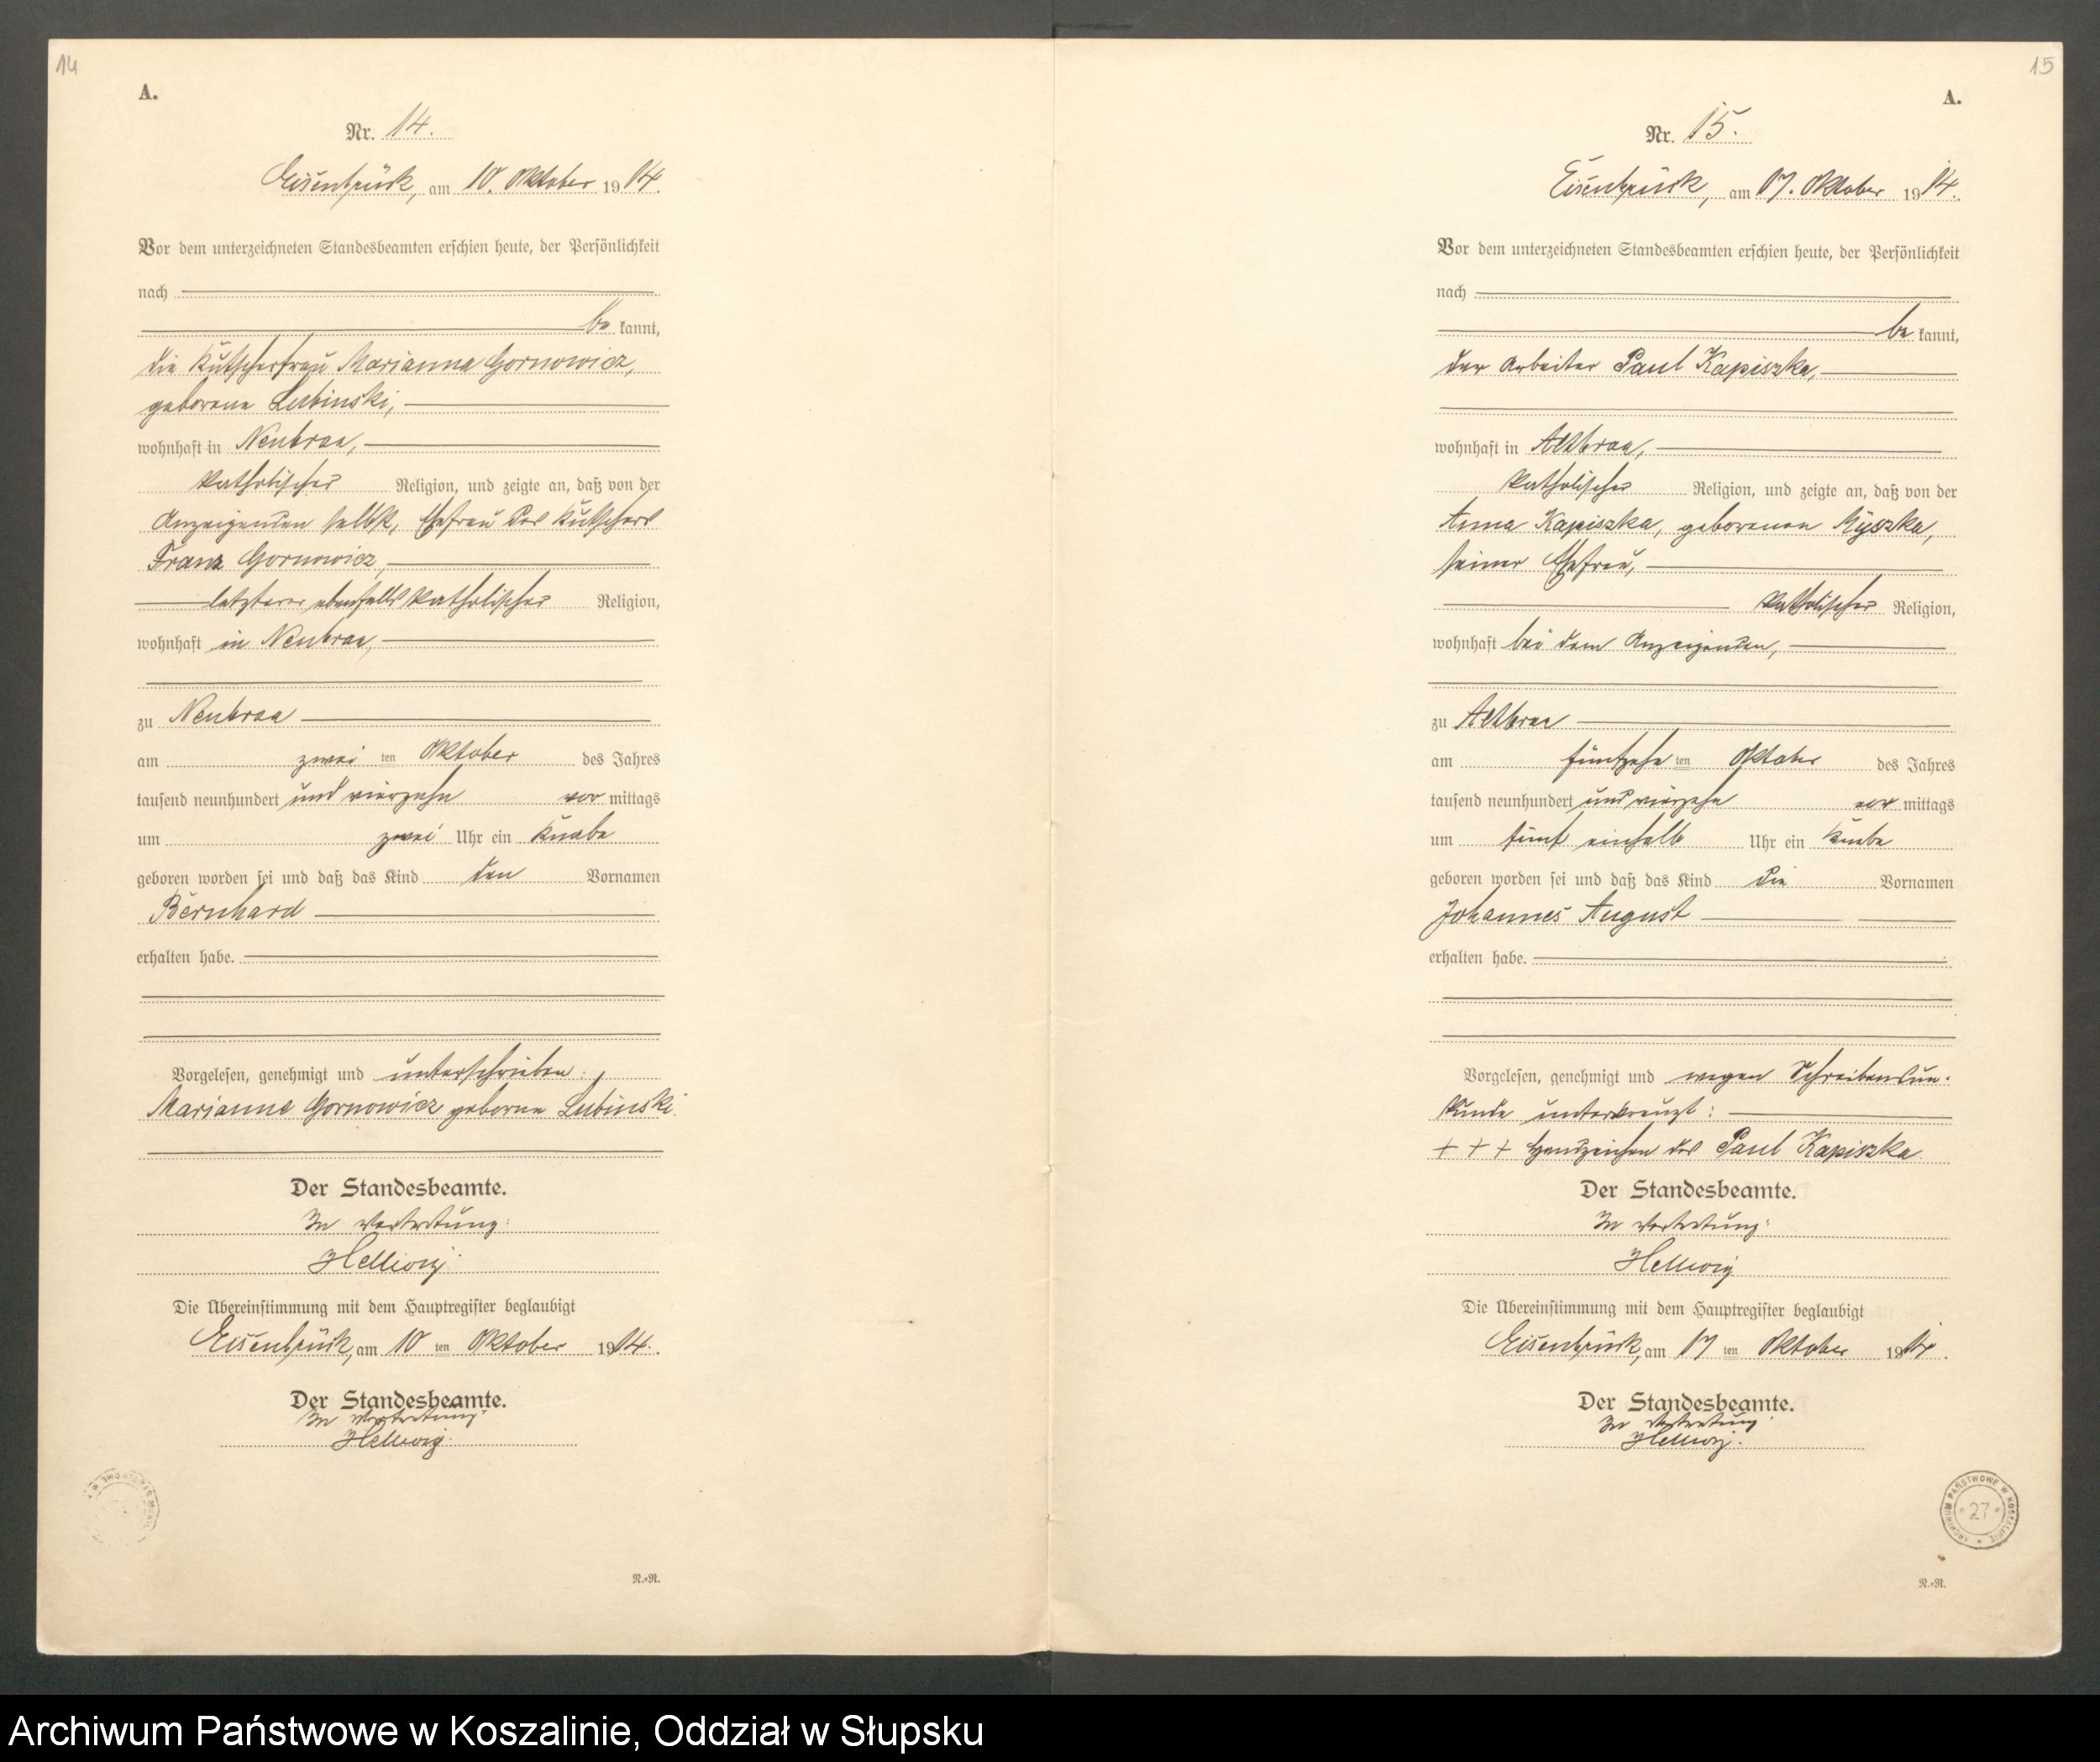 14
A.
Nr. 14.
Eisenbrück, am 10. Oktober 1914.
Vor dem unterzeichneten Standesbeamten erschien heute, der Persönlichkeit
nach
be kannt,
die Kutscherfrau Marianna Gornowicz,
geborene Lubinski,
wohnhaft in Neubraa,
katholischer Religion, und zeigte an, daß von der
Anzeigenden selbst, Ehefrau des Kutschers
Franz Gornowicz,
letzterer ebenfalls katholischer Religion,
wohnhaft in Neubraa,
zu Neubraa
am zwei ten Oktober des Jahres
tausend neunhundert und vierzehn vor mittags
um zwei Uhr ein Knabe
geboren worden sei und daß das Kind den Vornamen
Bernhard
erhalten habe.
Vorgelesen, genehmigt und unterschrieben:
Marianne Gornowicz geborne Lubinski.
Der Standesbeamte.
In Vertretung:
Hellwig.
Die Übereinstimmung mit dem Hauptregister beglaubigt
Eisenbrück, am 10 ten Oktober 1914.
Der Standesbeamte.
In Vertretung:
Hellwig.
R.-R.
15
A.
Nr. 15.
Eisenbrück, am 17. Oktober 1914.
Vor dem unterzeichneten Standesbeamten erschien heute, der Persönlichkeit
nach
be kannt,
der Arbeiter Paul Kapiszka,
wohnhaft in Altbraa,
katholischer Religion, und zeigte an, daß von der
Anna Kapiszka, geborenen Myszka,
seiner Ehefrau,
katholischer Religion,
wohnhaft bei dem Anzeigenden,
zu Altbraa
am fünfzehn ten Oktober des Jahres
tausend neunhundert und vierzehn vor mittags
um fünf einhalb Uhr ein Knabe
geboren worden sei und daß das Kind die Vornamen
Johannes August
erhalten habe.
Vorgelesen, genehmigt und wegen Schreibensun-
kunde unterkreuzt:
+ + + Handzeichen des Paul Kapiszka.
Der Standesbeamte.
In Vertretung:
Hellwig
Die Übereinstimmung mit dem Hauptregister beglaubigt
Eisenbrück, am 17 ten Oktober 1914.
Der Standesbeamte.
In Vertretung:
Hellwig.
ARCHIWUM PAŃSTWOWE W KOSZALINIE
27
R.-R.
Archiwum Państwowe w Koszalinie, Oddział w Słupsku